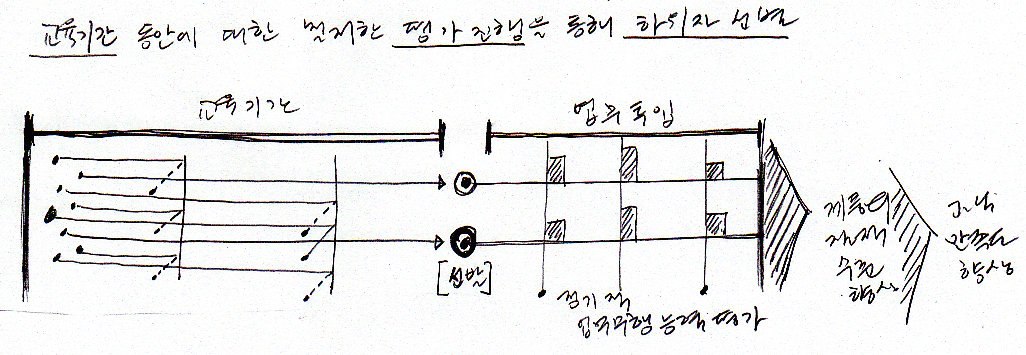 교육기간 동안에 대한 철저한 평가 진행을 통해 하위자 선별
교육기간
업무투입
[선발]
정기적
업무수행 능력 평가
제품의
잠재
수준
향상
고객
만족도
향상